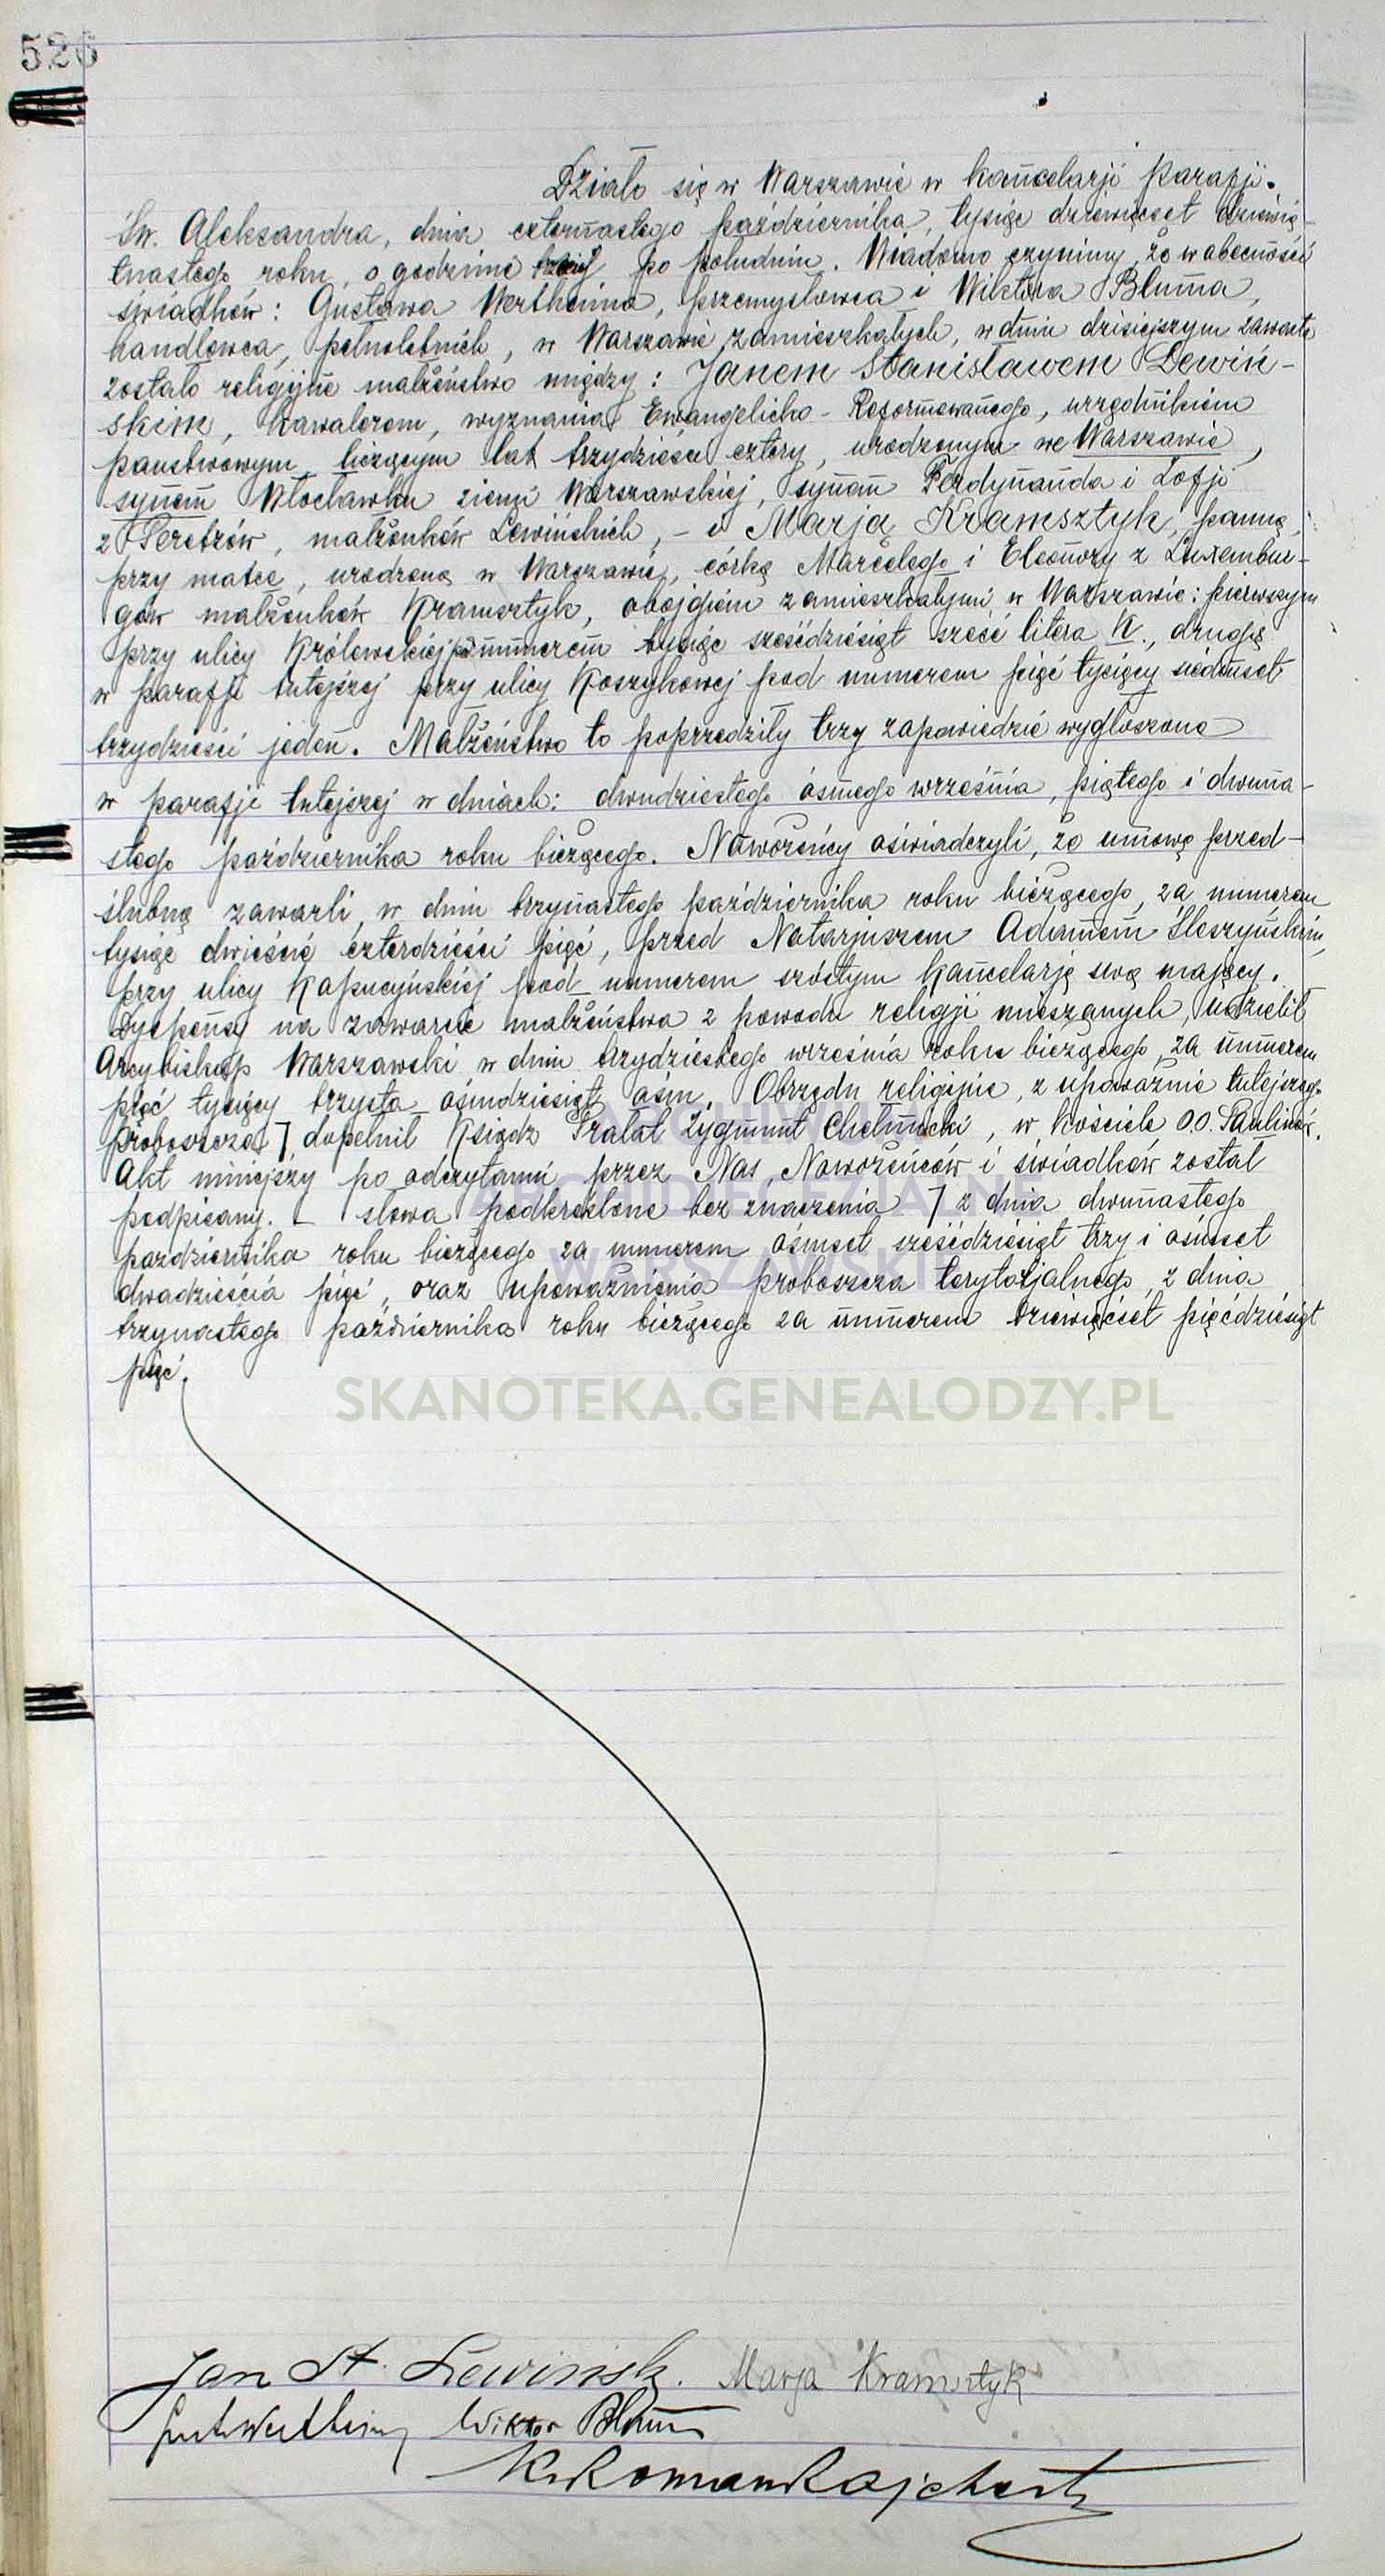 526
Działo się w Warszawie w kancelarji parafji
Św. Aleksandra, dnia czternastego października, tysiąc dziewięćset dziewię-
tnastego roku, o godzinie trzeciej po południu. Wiadomo czynimy, że w obecności
świadków: Gustawa Wertheima, przemysłowca i Wiktora Bluma,
handlowca, pełnoletnich, w Warszawie zamieszkałych, w dniu dzisiejszym zawarte
zostało religijne małżeństwo między: Janem Stanisławem Lewiń-
skim, kawalerem, wyznania Ewangelicko-Reformowanego, urzędnikiem
państwowym, liczącym lat trzydzieści cztery, urodzonym we Warszawie,
synem Włocławku ziemi Warszawskiej, synem Ferdynanda i Zofji
z Peretzów, małżonków Lewińskich, - a Marją Kramsztyk, panną,
przy matce, urodzoną w Warszawie, córką Marcelego i Eleonory z Luxembur-
gów małżonków Kramsztyk, obojgiem zamieszkałymi w Warszawie: pierwszym
przy ulicy Królewskiej pod numerem tysiąc sześćdziesiąt sześć litera K., drugą
w parafji tutejszej przy ulicy Koszykowej pod numerem pięć tysięcy siedmset
trzydzieści jeden. Małżeństwo to poprzedziły trzy zapowiedzie wygłoszone
w parafji tutejszej w dniach: dwudziestego ósmego września, piątego i dwuna-
stego października roku bieżącego. Nowożeńcy oświadczyli, że umowę przed-
ślubną zawarli w dniu trzynastego października roku bieżącego, za numerem
tysiąc dwieście czterdzieści pięć, przed Notarjuszem Adamem Śleszyńskim,
przy ulicy Kapucyńskiej pod numerem szóstym kancelarję swą mający.
Dyspensy na zawarcie małżeństwa z powodu religji mieszanych, udzielił
Arcybiskup Warszawski w dniu trzydziestego września roku bieżącego, za numerem
pięć tysięcy trzysta ośmdziesiąt ośm. Obrzędu religijnie, z upoważnie tutejszego
proboszcza ⁊, dopełnił Ksiądz Prałat Zygmunt Chełmicki, w kościele O.O. Paulinów.
Akt niniejszy po odczytaniu przez Nas, Nowożeńców i świadków został
podpisany. – słowa podkreślone bez znaczenia ⁊ z dnia dwunastego
października roku bieżącego za numerem ośmset sześćdziesiąt trzy i ośmset
dwadzieścia pięć, oraz upoważnienia proboszcza terytorjalnego, z dnia
trzynastego października roku bieżącego za numerem dziewięćset pięćdziesiąt
pięć.
ARCHIWUM
ARCHIDIECEZJALNE
WARSZAWSKIE
SKANOTEKA.GENEALODZY.PL
Jan St. Lewiński. Marja Kramsztyk
Gust Wertheim Wiktor Blum